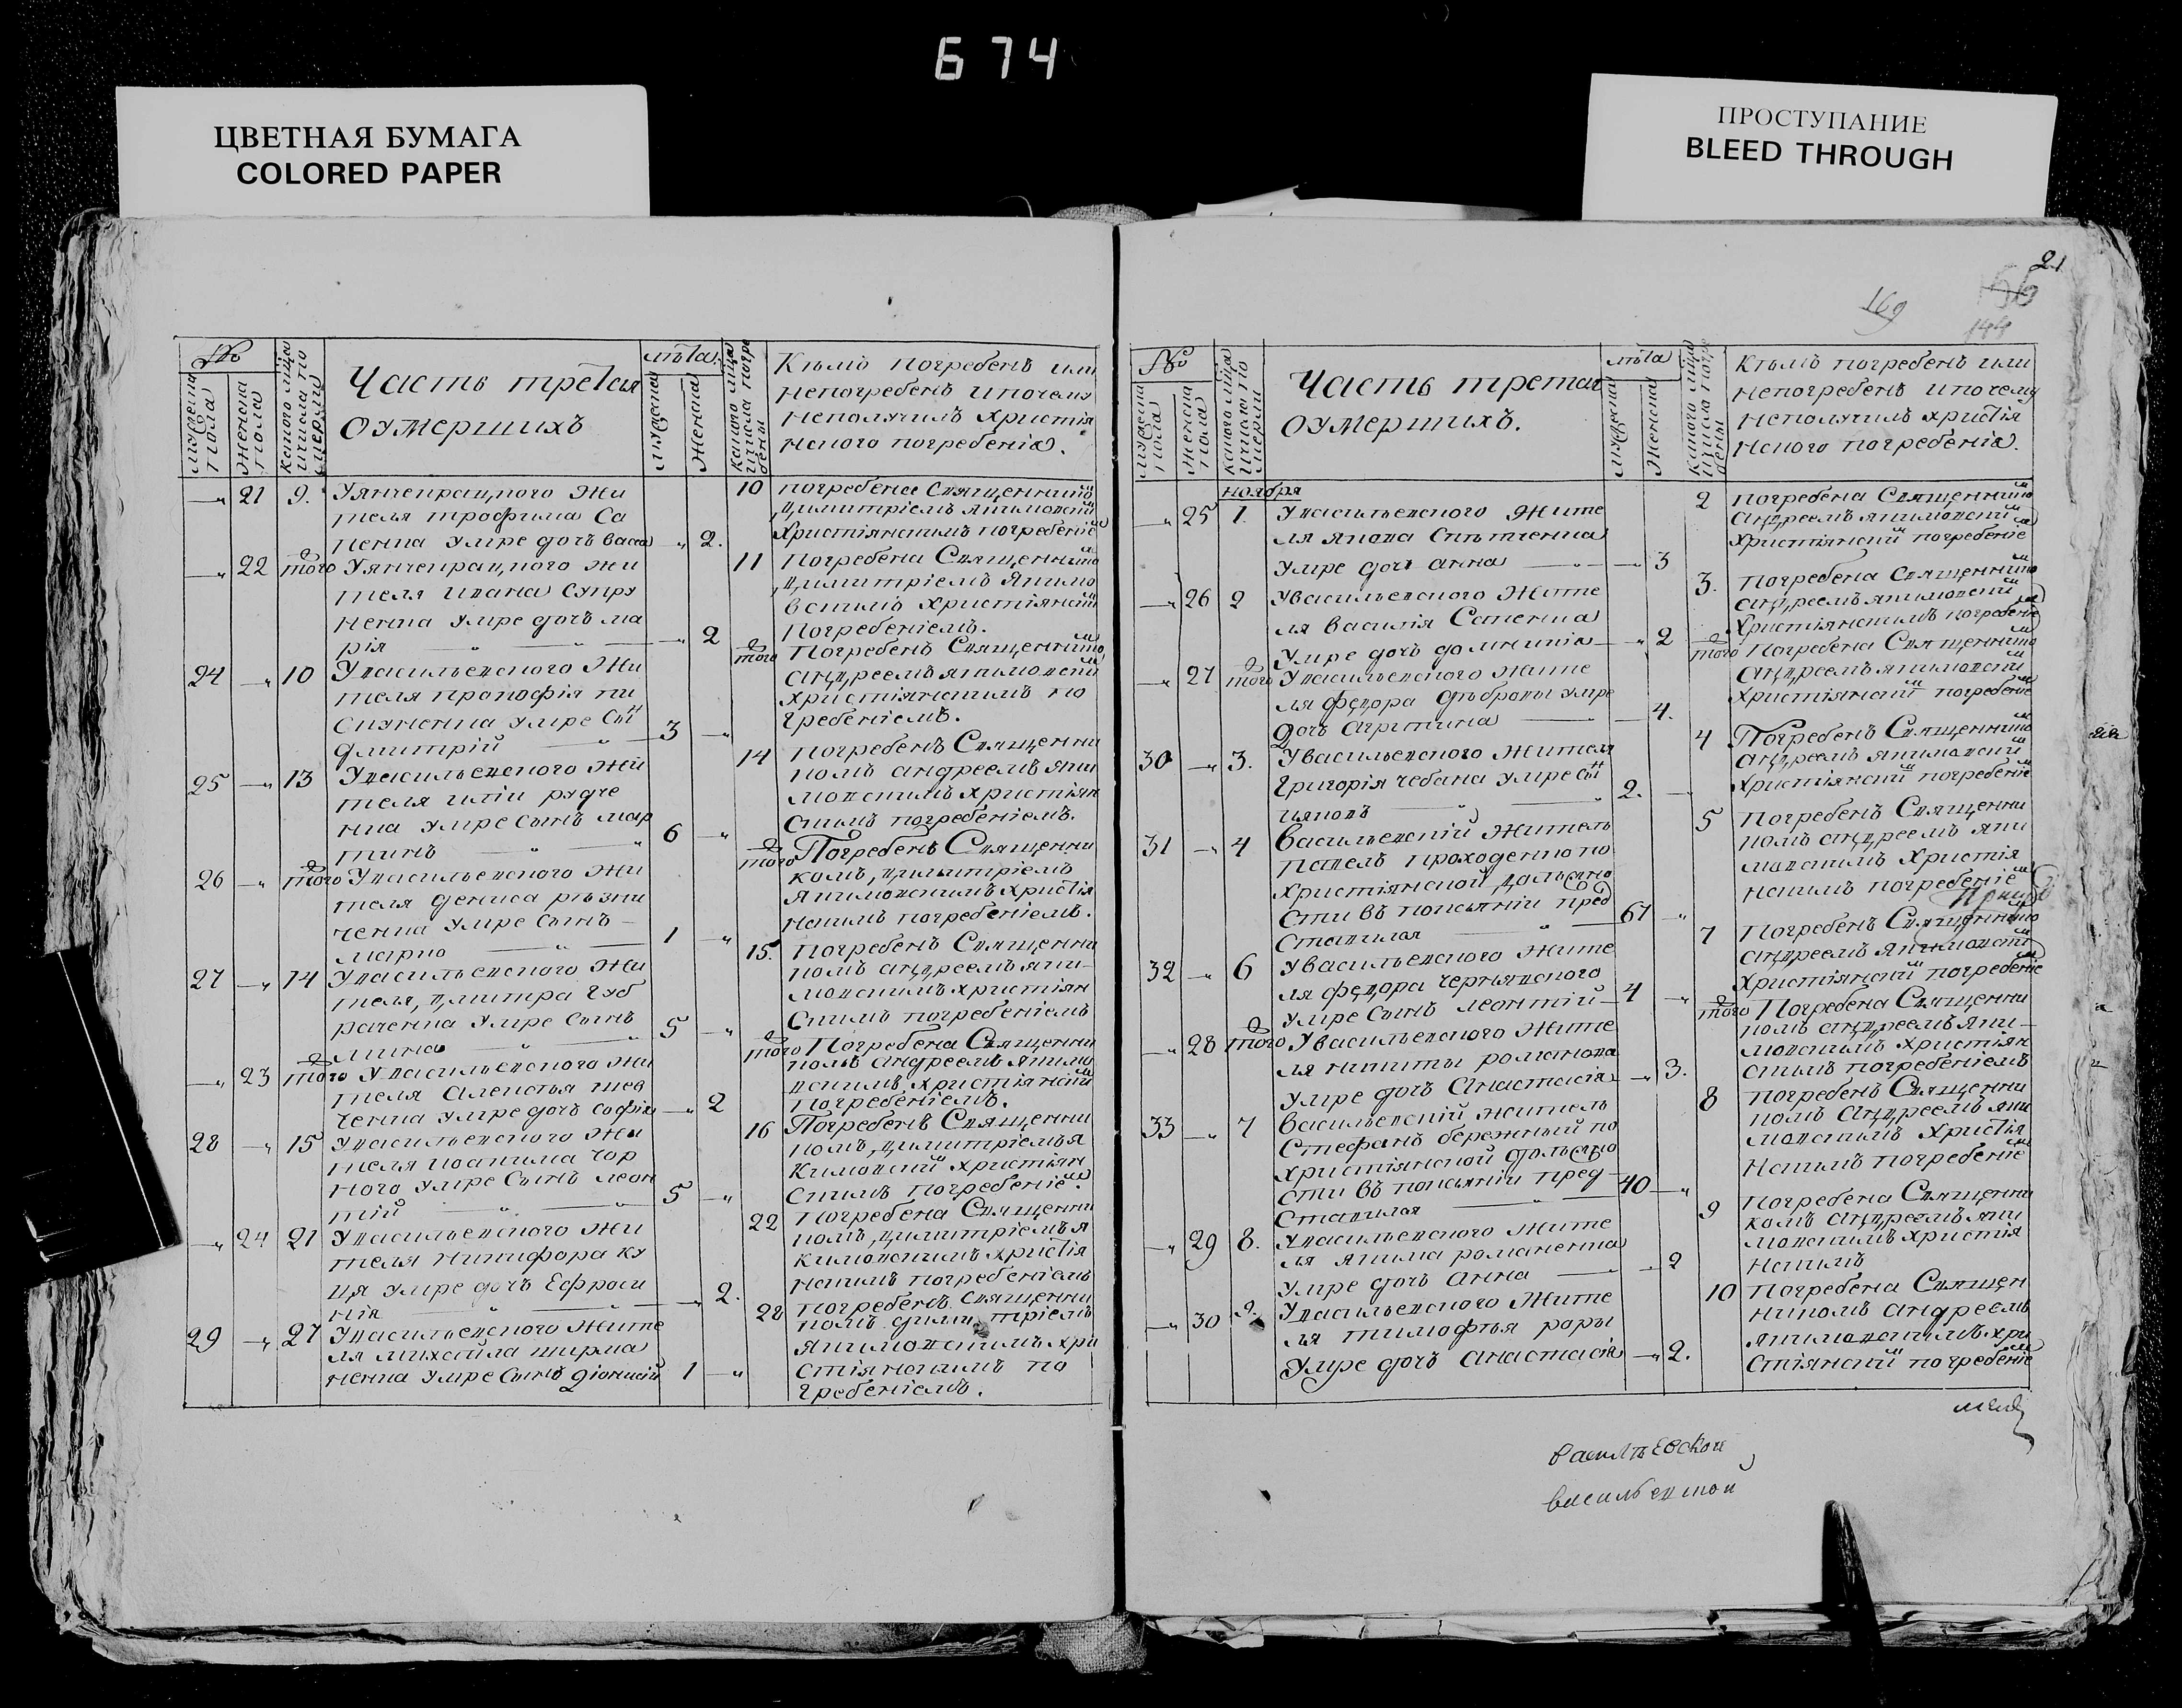 674
ЦВЕТНАЯ БУМАГА
COLORED PAPER
ПРОСТУПАНИЕ
BLEED THROUGH
№
мужеска пола
женска пола
лѣта
мужеска
женска
Часть третая
оумершихъ
Кѣмъ погребенъ или
непогребенъ и почему
неполучилъ христiя
нского погребенiя.
21 9.
теля трофима Са
2.
10 погребена Священнико
Димитрiемъ
22 того
теля ивана Супру
ненка умре дочъ ма
рiя 2
11 Погребена Священнико
Димитрiемъ Якимо
вскимъ христiянским
погребенiемъ.
24 10 Увасильевского Жи
теля прокофiя пи
умре Сын
дмитрiй 3
того Погребенъ Священнико
андреемъ якимовским
христiянскимъ по
гребенiемъ.
25 13 Увасильевского Жи
теля илiи рудче
нка умре сынъ мар
тинъ 6
14 погребенъ Священни
комъ андреемъ яки
мовскимъ христiян
скимъ погребенiемъ.
26 того Увасильевского Жи
теля дениса рѣзни
ченка умре сынъ
марко 1
того Погребенъ Священни
комъ димитрiемъ
якимовскимъ христiя
нскимъ погребенiемъ.
27 14 Увасильевского Жи
теля димитра губ
раченка умре сынъ
мина 5
15. Погребенъ Священни
комъ андреемъ яки
мовскимъ христiян
скимъ погребенiемъ
23 того Увасильевского жи
теля алексѣя шев
ченка умре дочъ софiя 2
того Погребена Священни
комъ андреемъ якимо
вскимъ христiянским
погребенiемъ.
28 15 Увасильевского Жи
теля иоакима чор
ного умре сынъ леон
тiй 5
16 Погребенъ Священни
комъ димитрiемъ я
кимовским христiян
скимъ погребенiем.
24 21 Увасильевского Жи
теля никифора ку
ця умре дочъ Ефроси
нiя 2.
22 погребена Священни
комъ димитрiемъ я
кимовскимъ христiя
нскимъ погребенiемъ
29 27 Увасильевского Жите
ля михаила ширма
ненка умре сынъ дiонисiй 1
28 погребенъ священни
комъ димитрiемъ
якимовскимъ хри
стiянскимъ по
гребенiемъ.
21
169
156
144
№
мужеска пола
женска пола
лѣта
мужеска
женска
Часть третая
оумершихъ.
Кѣмъ погребенъ или
непогребенъ и почему
неполучилъ христiя
нского погребенiя.
ноября
25 1. Увасильевского Жите
ля якова
умре дочъ анна 3
2 погребена Священнико
андреемъ якимовским
христiянским погребенiе
26 2 Увасильевского Жите
ля василiя Сененка
умре дочъ домникiя 2
3. погребена Священнико
андреемъ якимовским
христiянскимъ погребенiе
27 того Увасильевского Жите
ля федора умре
дочъ агрипина 4.
того Погребена Священнико
андреемъ якимовским
христiянским погребенiе
30 3. Увасильевского Жителя
григорiя чебана умре сын
iяковъ 2.
4 Погребенъ Священнико
андреемъ якимовским
христiянским погребенiе
31 4 васильевскiй житель
павелъ проходенко по
христiянской должно
сти въ покаянiи пред
ставился 67
5 погребенъ Священни
комъ андреемъ яки
мовскимъ христiя
нскимъ погребенiем
32 6 Увасильевского Жите
ля федора чернявского
умре сынъ леонтiй 4
7 погребенъ Священнико
андреемъ якимовским
христiянским погребенiе
28 того Увасильевского Жите
ля никиты романова
умре дочъ анастасiя 3.
того Погребена Священни
комъ андреемъ яки
мовскимъ христiян
скимъ погребенiемъ
33 7 васильевскiй житель
стефанъ бережный по
христiянской должно
сти въ покаянiи пред
ставился 40
8 погребенъ Священни
комъ андреемъ яки
мовскимъ христiя
нскимъ погребенiе
29 8. Увасильевского Жите
ля якима романенка
умре дочъ анна 2
9 погребена Священни
комъ андреемъ яки
мовскимъ христiя
нскимъ
30 9. Увасильевского Жите
ля тимофѣя
умре дочъ анастасiя 2.
10 погребена Священ
никомъ андреемъ
якимовскимъ хри
стiянским погребенiе
василъевской
васильевской